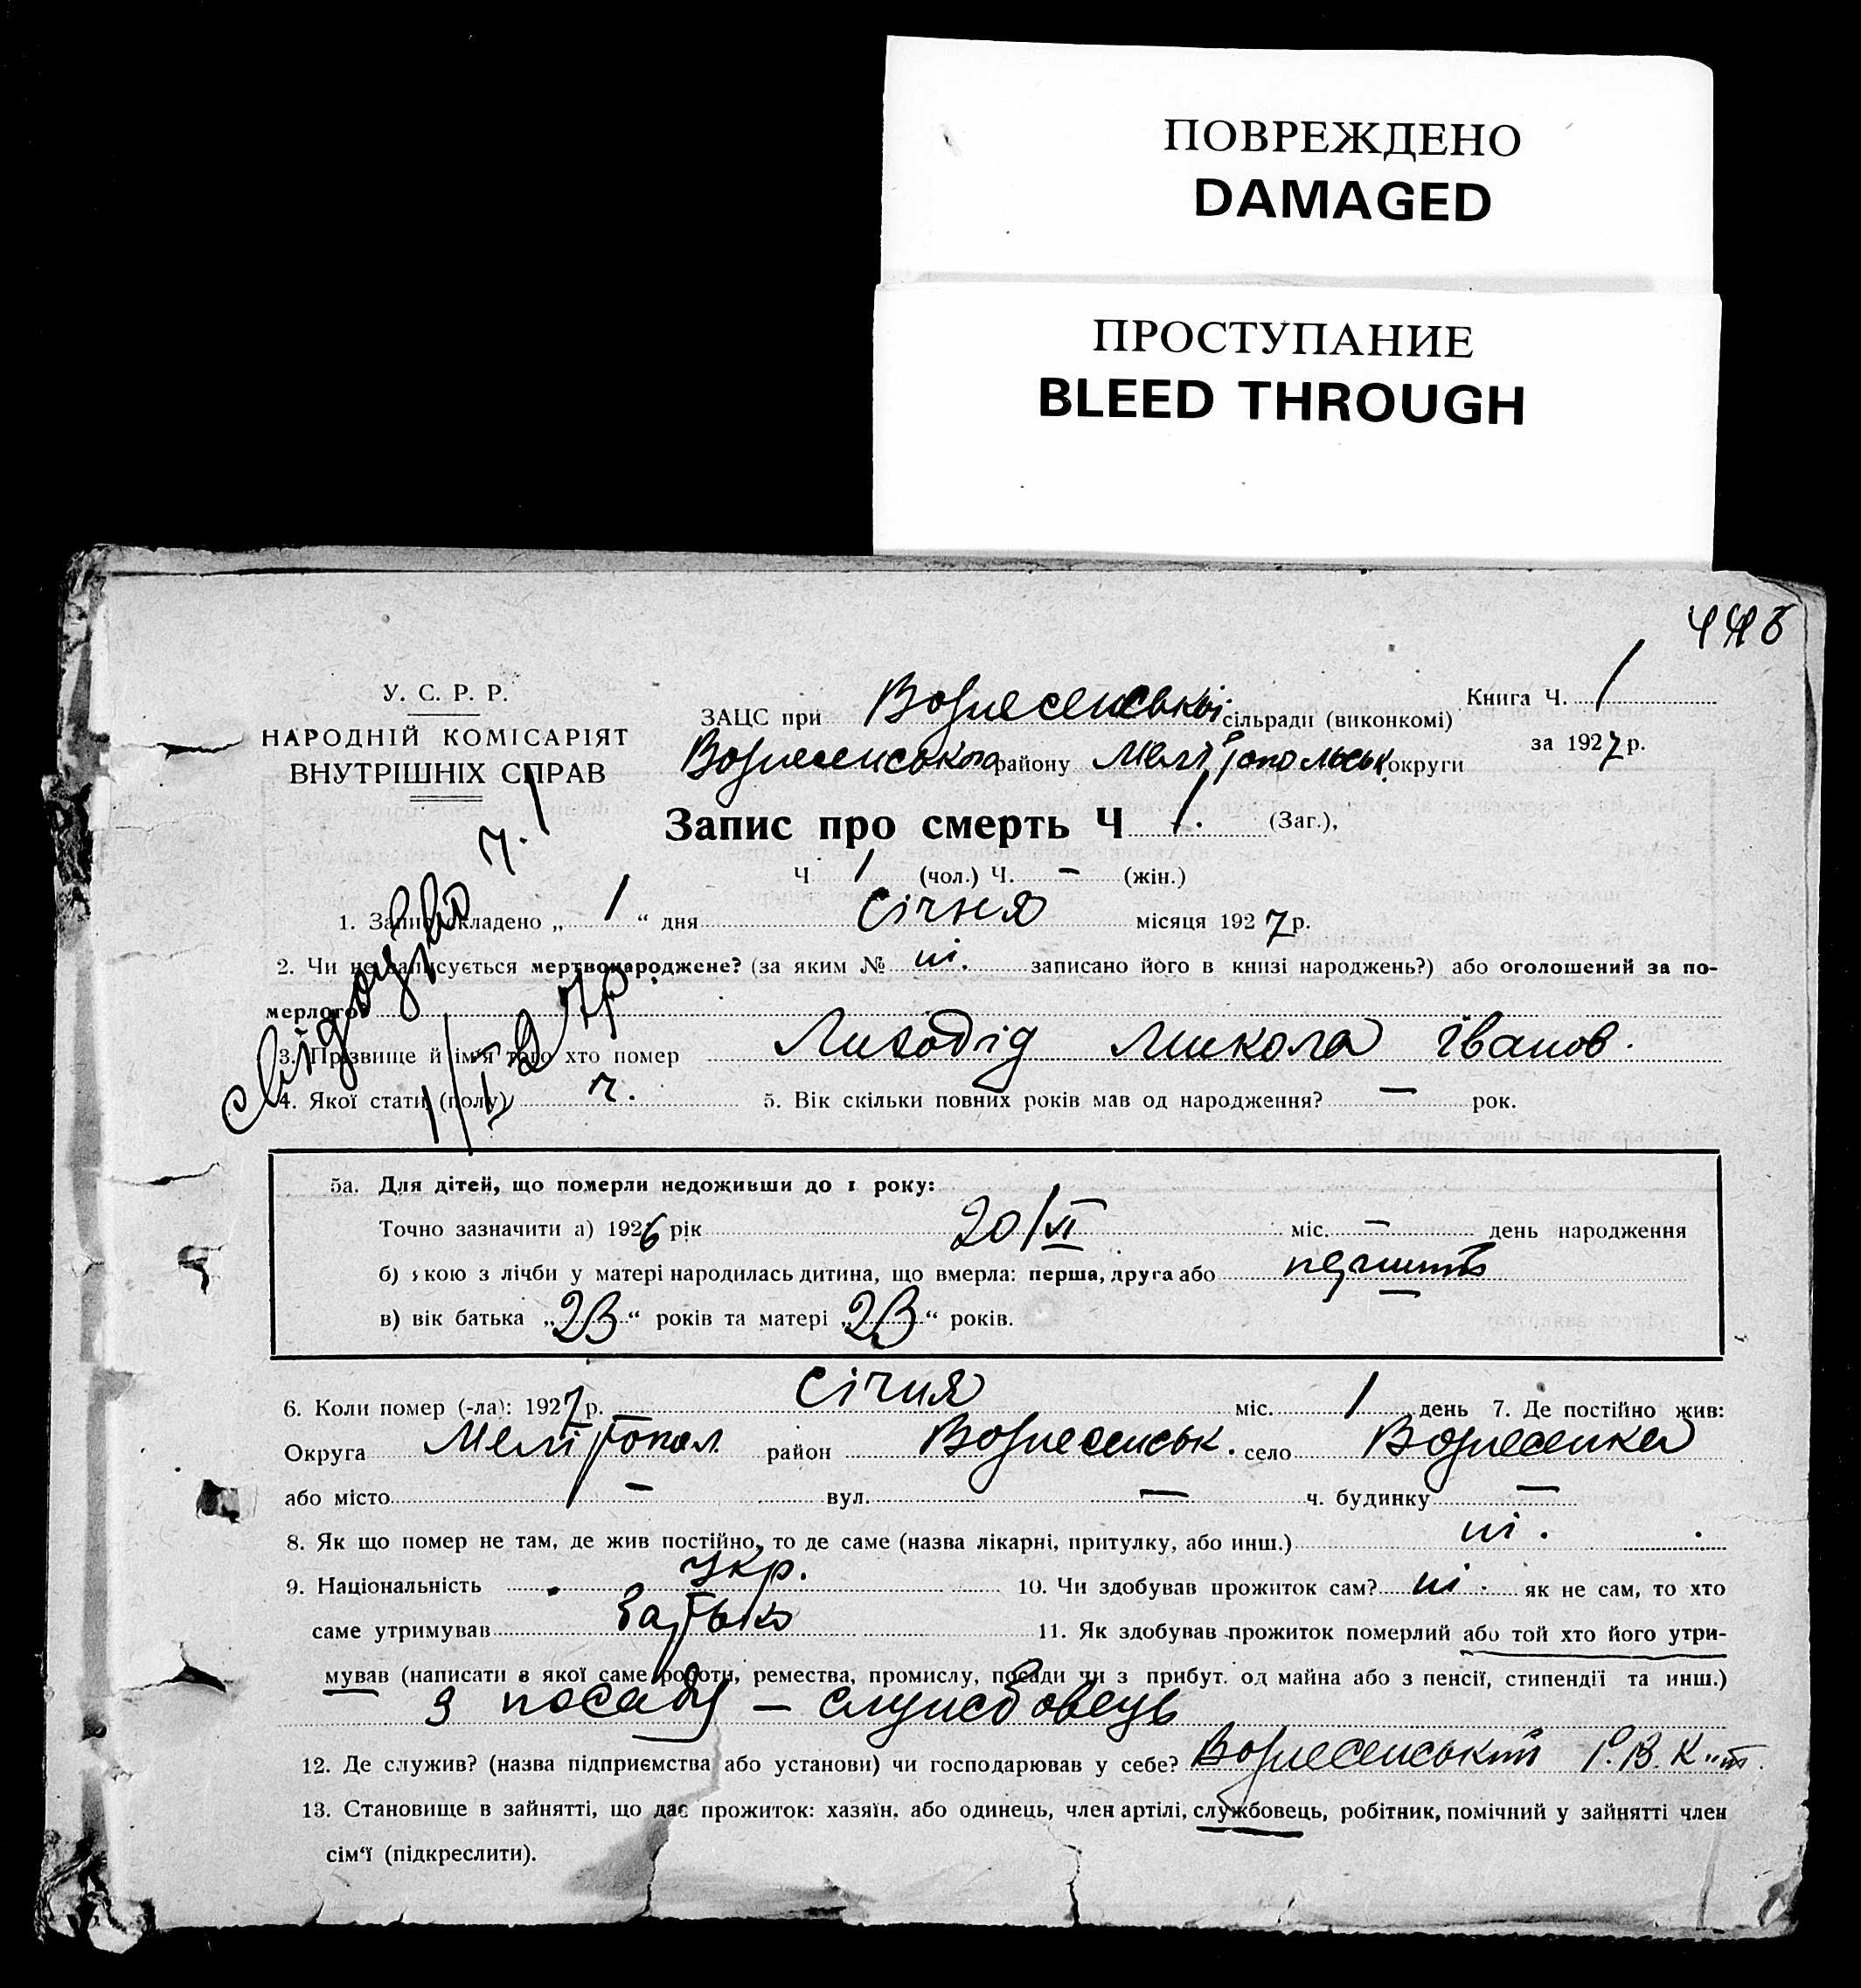 ПОВРЕЖДЕНО
DAMAGED
ПРОСТУПАНИЕ
BLEED THROUGH
У. С. Р. Р.
НАРОДНІЙ КОМІСАРІЯТ
ВНУТРІШНІХ СПРАВ
Книга Ч. 1
ЗАЦС при Вознесенській сільради (виконкомі)
за 1927 р.
Вознесенського району Мелітопольськ. округи
Запис про смерть Ч 1. (Заг.),
Ч 1 (чол.) Ч. — (жін.)
ч. 1
1. Запис складено „ 1 “ дня січня місяця 1927 р.
2. Чи не записується мертвонароджене? (за яким № ні. записано його в книзі народжень?) або оголошений за по-
мерлого?
3. Прізвище й ім'я того хто помер Лиходід Микола Іванов.
4. Якої статі (полу) ч. 5. Вік скільки повних років мав од народження? — рок.
5а. Для дітей, що померли недоживши до 1 року:
Точно зазначити а) 1926 рік 20/XI міс. — день народження
б) якою з лічби у матері народилась дитина, що вмерла: перша, друга або
в) вік батька „ 23 “ років та матері „ 23 “ років.
6. Коли помер (-ла): 1927 р. січня міс. 1 день 7. Де постійно жив:
Округа Мелітопол. район Вознесенськ. село Вознесенка
або місто — вул. — ч. будинку —
8. Як що помер не там, де жив постійно, то де саме (назва лікарні, притулку, або инш.) ні.
9. Національність Укр. 10. Чи здобував прожиток сам? ні. як не сам, то хто
саме утримував батько 11. Як здобував прожиток померлий або той хто його утри-
мував (написати в якої саме роботи, ремества, промислу, посади чи з прибут. од майна або з пенсії, стипендії та инш.)
з посади — службовець
12. Де служив? (назва підприємства або установи) чи господарював у себе? Вознесенський Р.В.К-т.
13. Становище в зайнятті, що дає прожиток: хазяїн, або одинець, член артілі, службовець, робітник, помічний у зайнятті член
сім'ї (підкреслити).